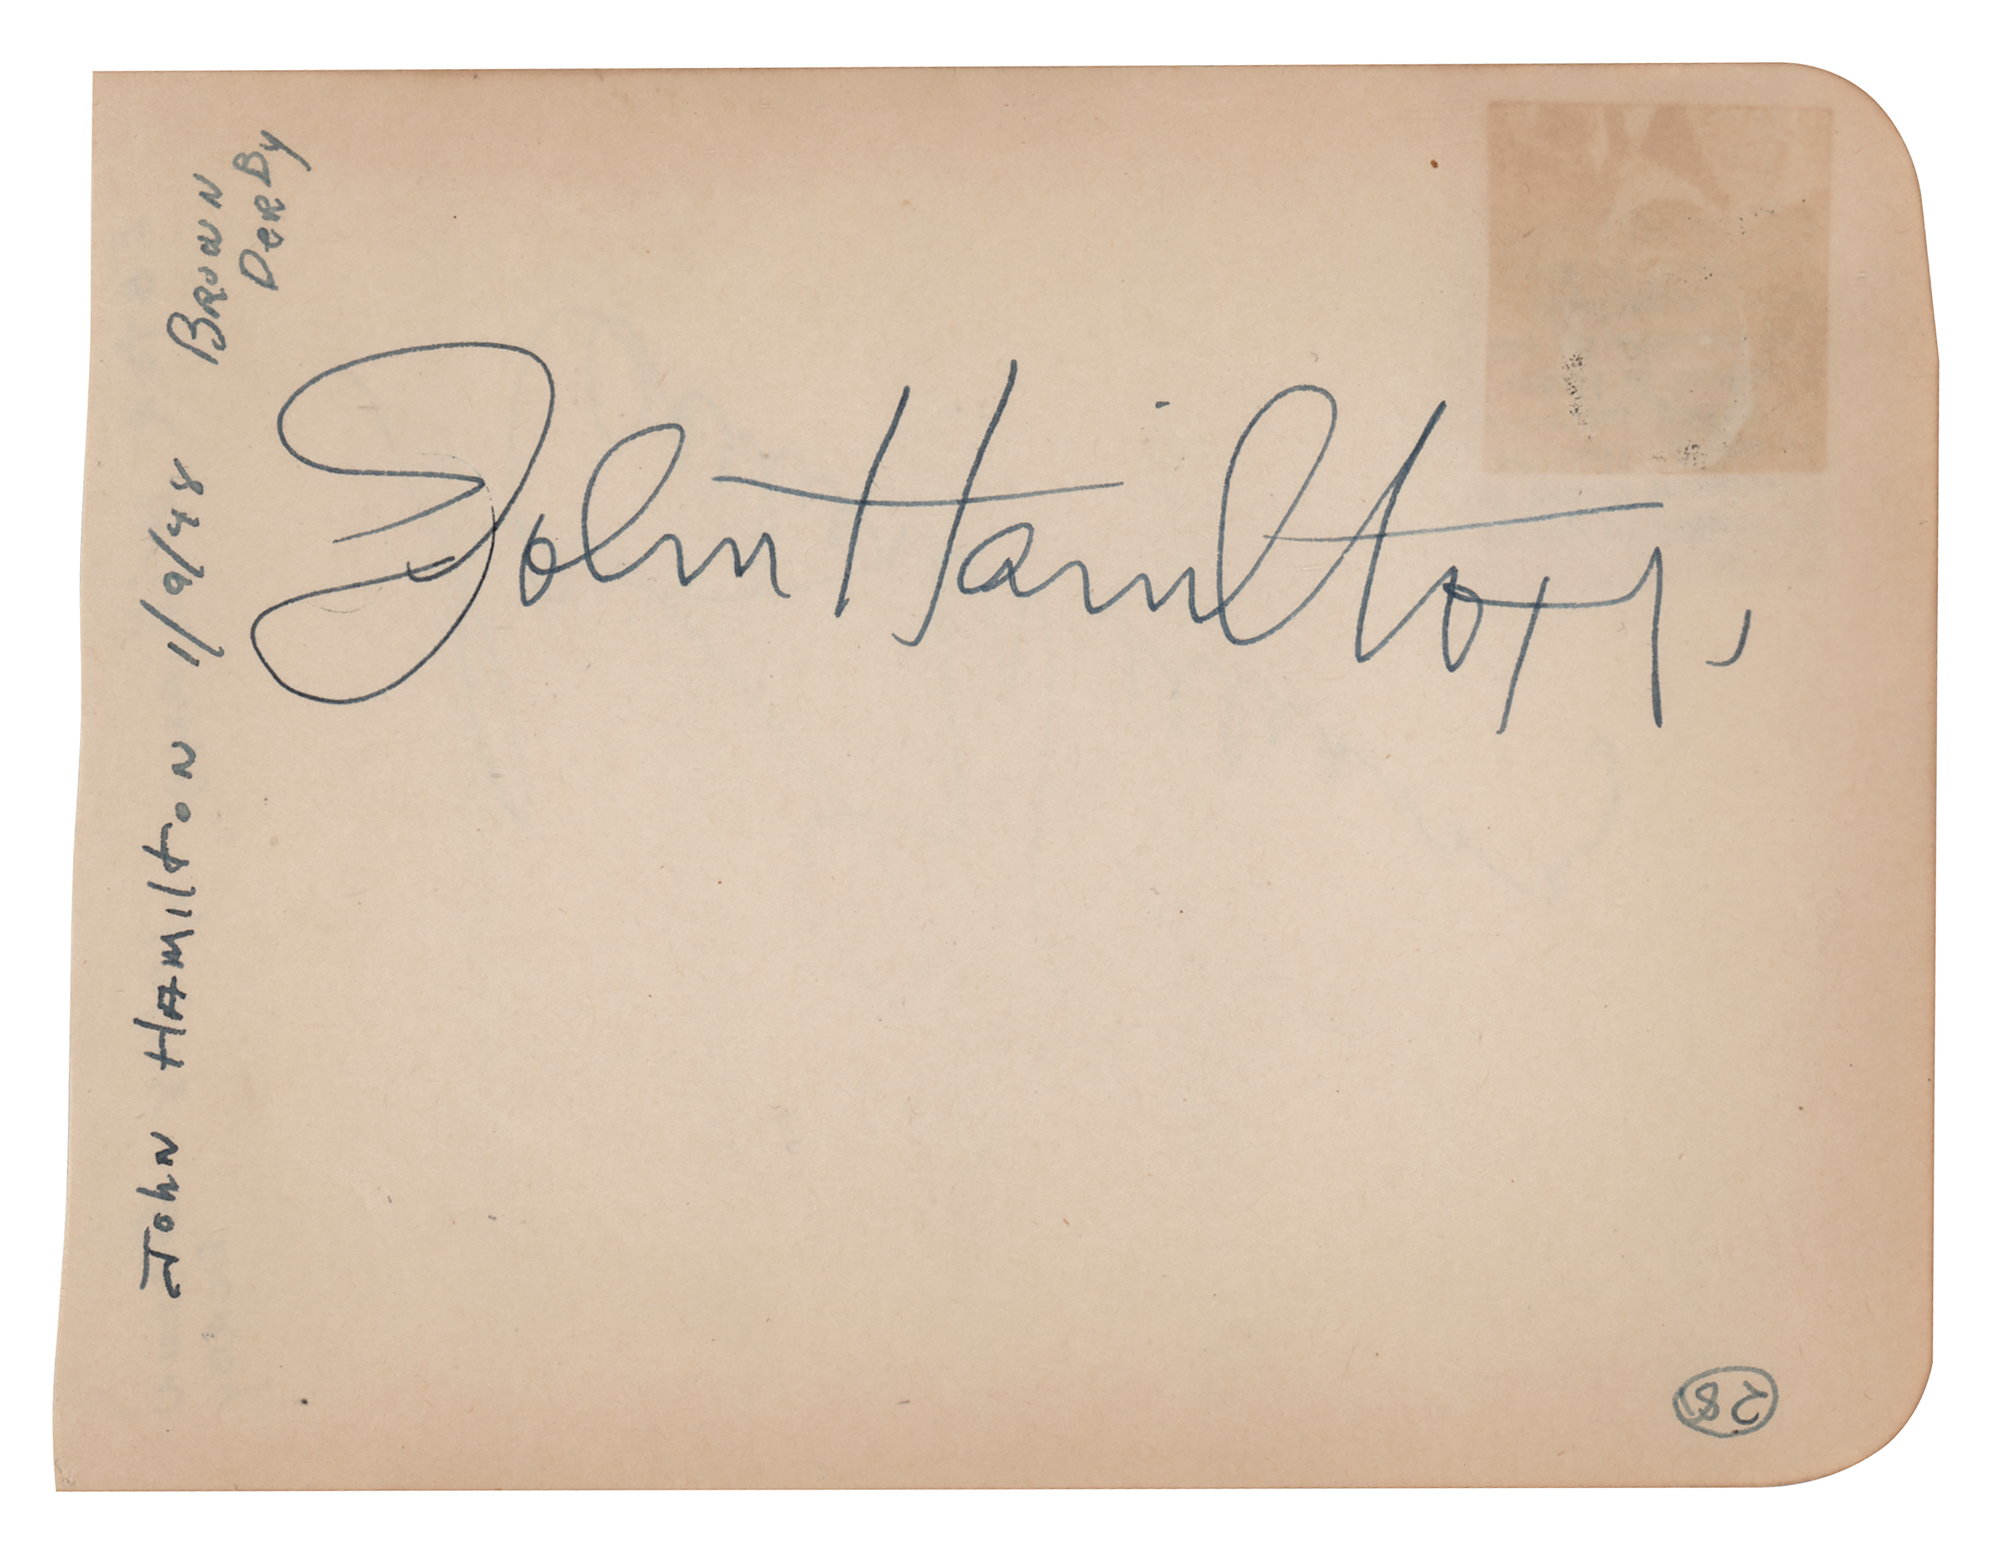 John Hamilton
John Hamilton 1/9/48 Brown
Derby
28